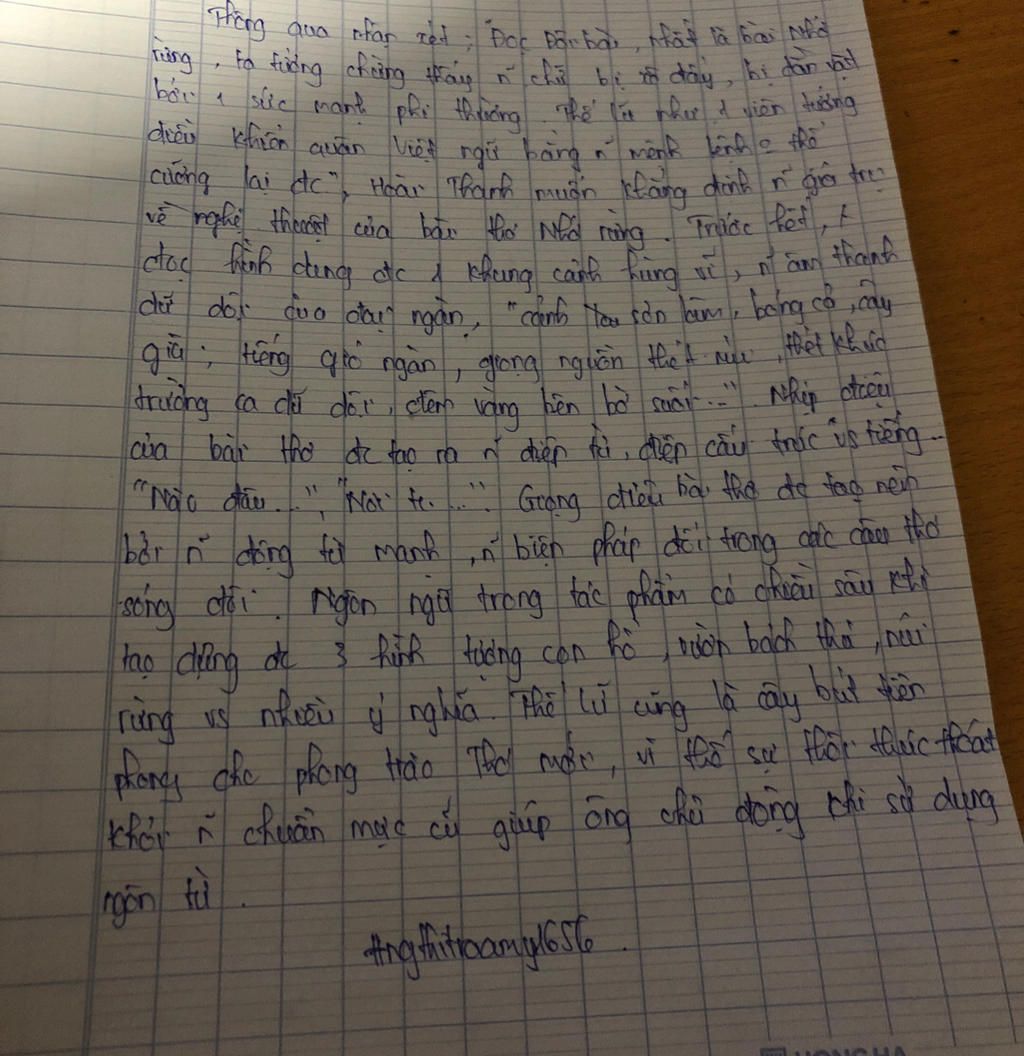 Thông qua nhận xét: Đọc đôi bài, nhất là bài Nhớ
rừng, ta tưởng chừng thấy n~ chữ bị xô đẩy, bị dằn vặt
bởi 1 sức mạnh phi thường. Thế Lữ như 1 viên tướng
điều khiển quân Việt ngữ bằng n~ mệnh lệnh o thể
cưỡng lại đc", Hoài Thanh muốn khẳng định n~ giá trị
về nghệ thuật của bài thơ Nhớ rừng. Trước hết, t
đọc hình dung đc 1 khung cảnh hùng vĩ, n~ âm thanh
dữ dội của đại ngàn, "cảnh sơn lâm, bóng cả, cây
già; tiếng gió ngàn, giọng nguồn thét núi, thét khúc
trường ca dữ dội, đêm vàng bên bờ suối...". Nhịp điệu
của bài thơ đc tạo ra n~ điệp từ, điệp cấu trúc vs tiếng..
"Nào đâu...", "Nơi ta...". Giọng điệu bài thơ đc tạo nên
bởi n~ động từ mạnh, n~ biện pháp đối trong các câu thơ
sóng đôi. Ngôn ngữ trong tác phẩm có chiều sâu khi
tạo dựng đc 3 hình tượng con hổ, vườn bách thú, núi
rừng vs nhiều ý nghĩa. Thế Lữ cũng là cây bút tiên
phong cho phong trào Thơ mới, vì thế sự thôi thúc thoát
khỏi n~ chuẩn mực cũ giúp ông chủ động khi sử dụng
ngôn từ.
HONGHA